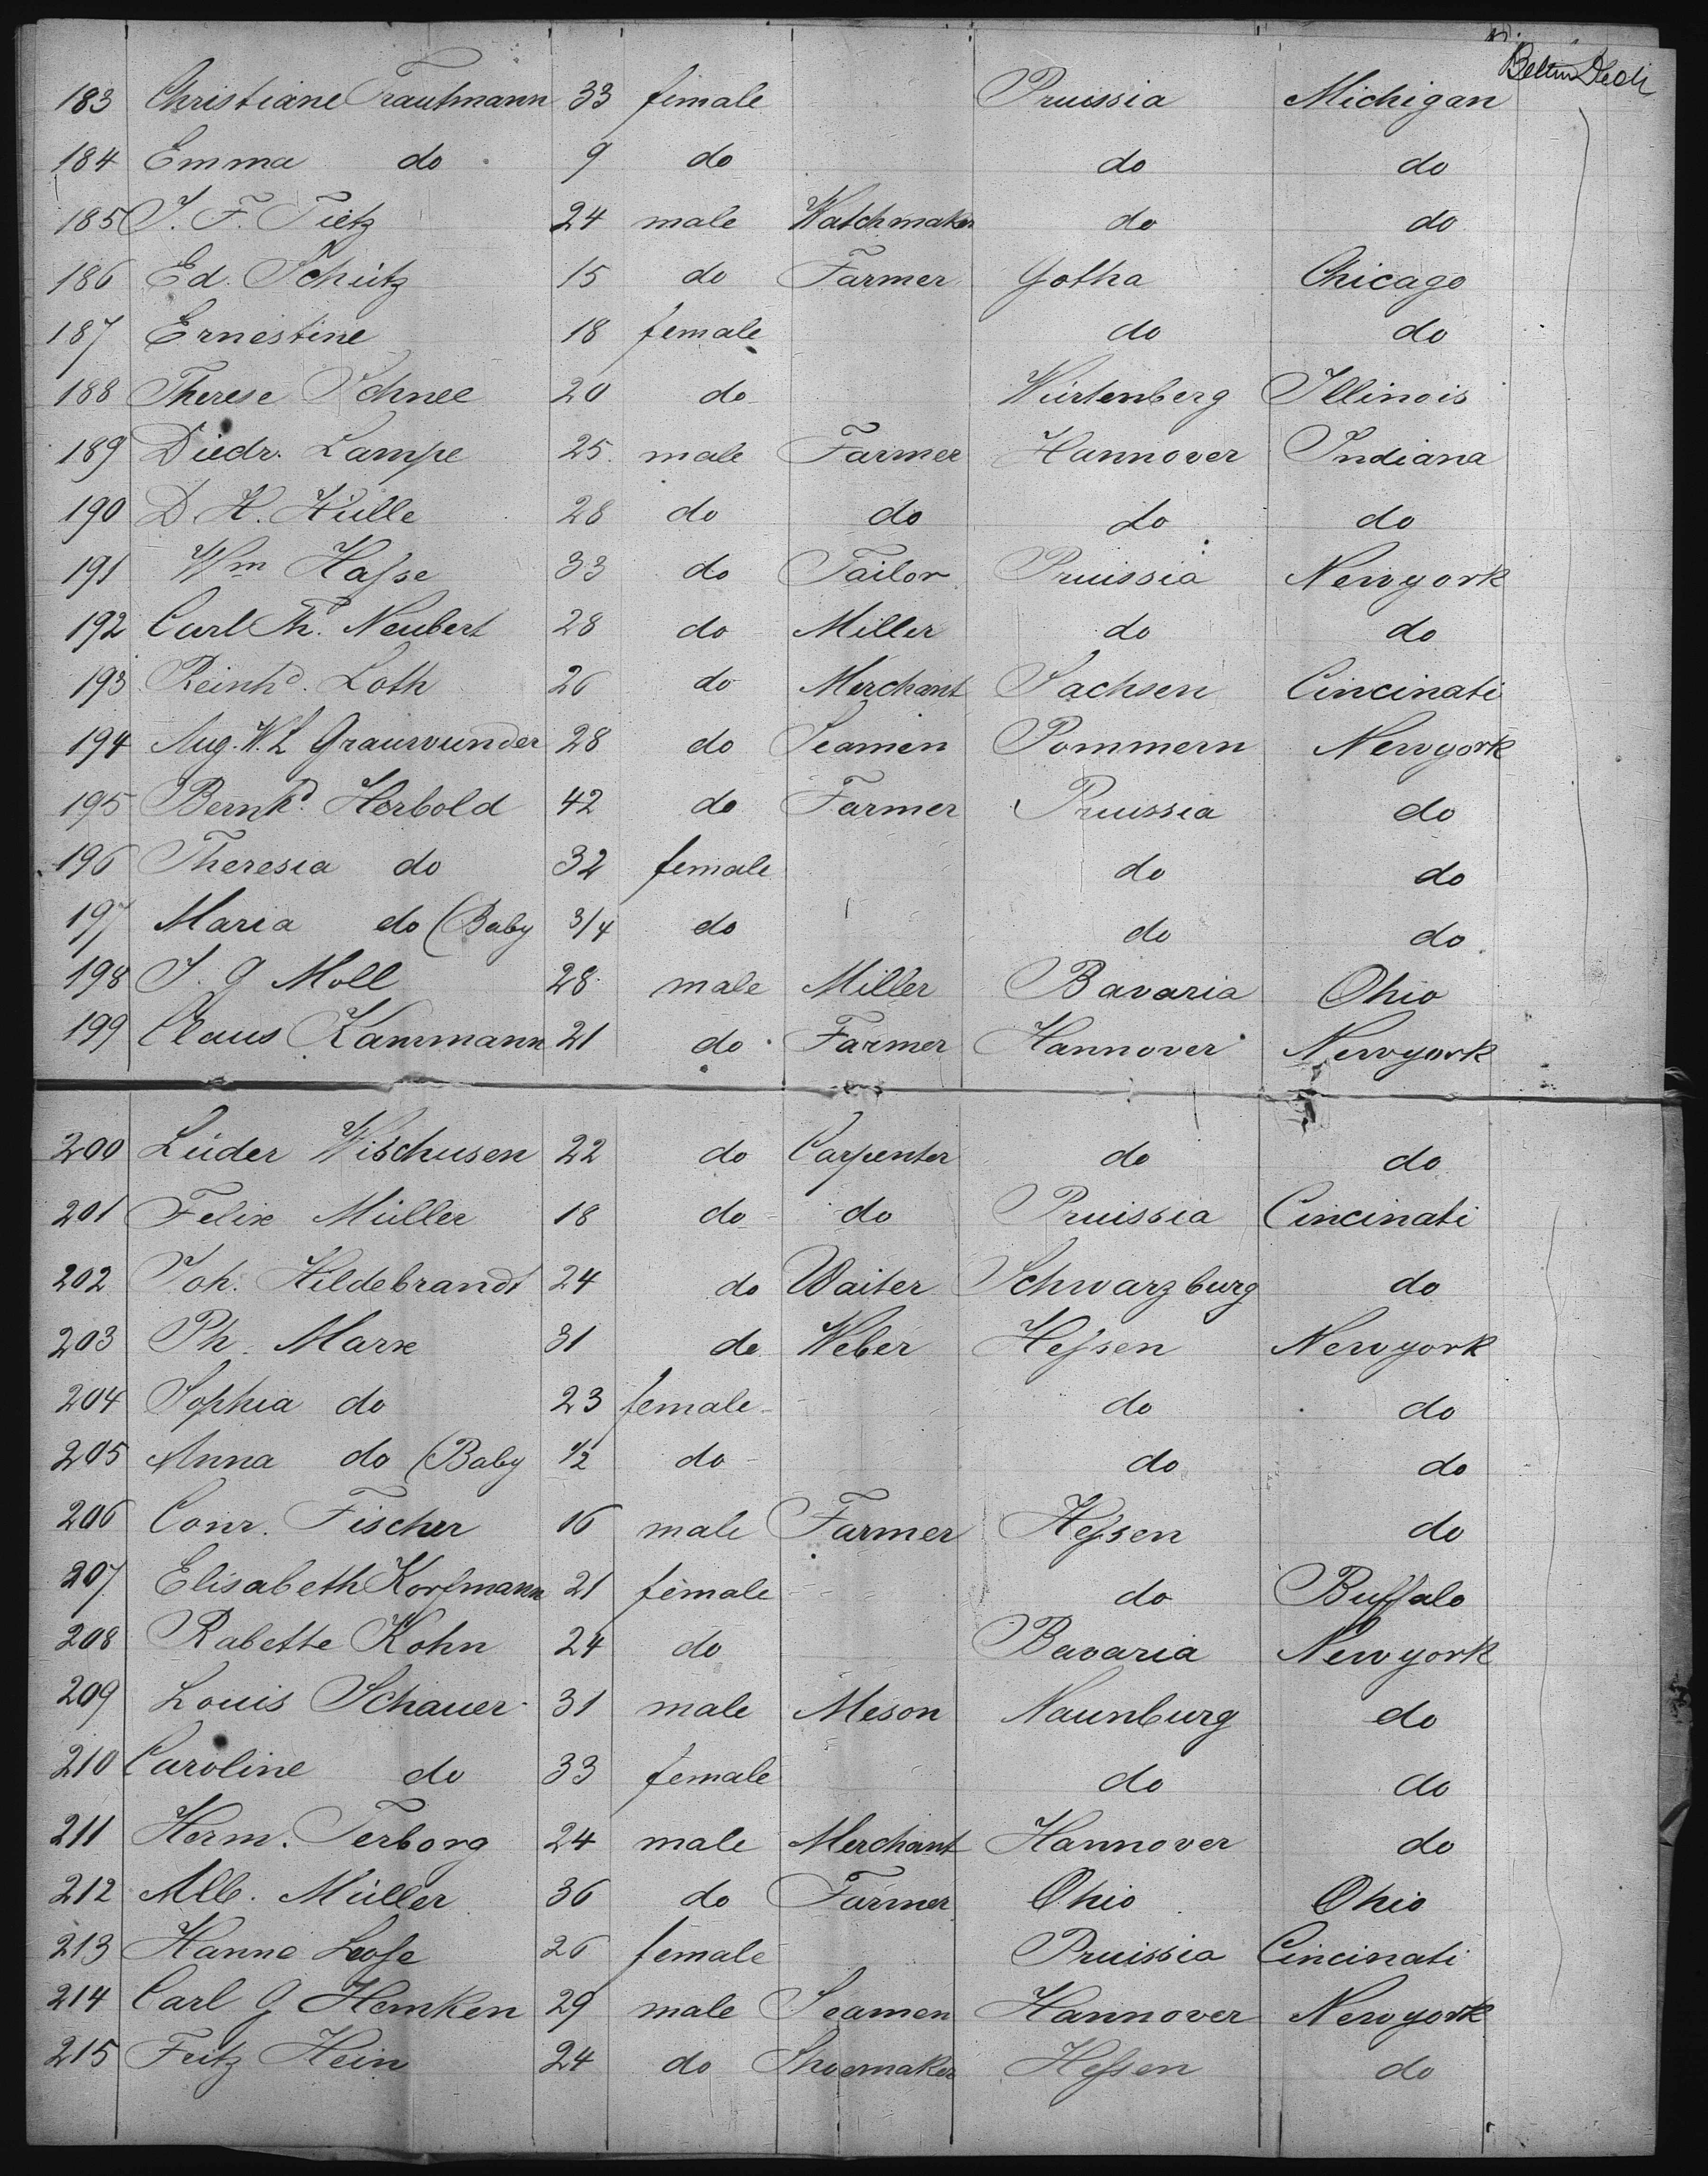 183 Christiane Trautmann 33 female Pruissia Michigan
184 Emma do 9 do do do
185 J. F. Tietz 24 male Watchmaker do do
186 Ed. Schütz 15 do Farmer Gotha Chicago
187 Ernestine 18 female do do
188 Therese Schnee 20 do Würtenberg Illinois
189 Diedr. Lampe 25 male Farmer Hannover Indiana
190 D. H. Hülle 28 do do do do
191 Wm Hasse 33 do Tailor Pruissia Newyork
192 Carl Th. Neubert 28 do Miller do do
193 Reinhd. Loth 26 do Merchant Sachsen Cincinati
194 Aug. W. L Graurvunder 28 do Seamen Pommern Newyork
195 Bernhd. Herbold 42 do Farmer Pruissia do
196 Theresia do 32 female do do
197 Maria do (Baby 3/4 do do do
198 J. G Moll 28 male Miller Bavaria Ohio
199 Claus Kammann 21 do Farmer Hannover Newyork
200 Lüder Wischusen 22 do Carpenter do do
201 Felix Müller 18 do do Pruissia Cincinati
202 Joh. Hildebrandt 24 do Waiter Schwarzburg do
203 Ph. Marx 31 do Weber Hessen Newyork
204 Sophia do 23 female do do
205 Anna do (Baby 1/2 do do do
206 Conr. Fischer 16 male Farmer Hessen do
207 Elisabeth Korfmann 21 female do Buffalo
208 Rabette Kohn 24 do Bavaria Newyork
209 Louis Schauer 31 male Meson Naunburg do
210 Caroline do 33 female do do
211 Herm. Terborg 24 male Merchant Hannover do
212 Alb. Müller 36 do Farmer Ohio Ohio
213 Hanne 26 female Pruissia Cincinati
214 Carl G Hemken 29 male Seamen Hannover Newyork
215 Fritz Hein 24 do Shoemaker Hessen do